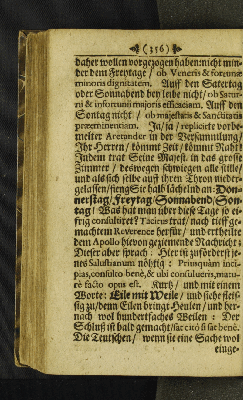 (356)
daher wollen vorgezogen haben: nicht min-
der dem Freytage / ob Veneris & fortunæ
minoris dignitatem. Auff den Satertag
oder Sonnabend bey leibe nicht / ob Satur-
ni & infortunii majoris efficaciam. Auff den
Sontag nicht / ob majestatis & Sanctitatis
præeminentiam. Ja / ja / replicirte vorbe-
melter Aretander in der Versammlung /
Ihr Herren / kömmt Zeit / kömmt Raht!
Indem trat Seine Majest. in das grosse
Zimmer / deswegen schwiegen alle stille /
und als sich selbe auff ihren Thron nieder-
gelassen / fieng Sie halb lächelnd an: Don-
nerstag / Freytag / Sonnabend / Son-
tag! Was hat man über diese Tage so ei-
frig consultiret? Tacitus trat / nach tieff ge-
machtem Reverence herfür / und ertheilte
dem Apollo hievon geziemende Nachricht:
Dieser aber sprach: Hier ist zu förderst je-
nes Salustianum nöhtig: Priusquam inci-
pias, consulto benè, & ubi consulueris, matu-
rè facto opus est. Kurtz / und mit einem
Worte: Eile mit Weile / und siehe fleis-
sig zu / denn Eilen bringt Heulen / und her-
nach wol hundertfaches Weilen: Der
Schluß ist bald gemacht / sat citò si sat benè.
Die Teutschen / wenn sie eine Sache wol
einge-